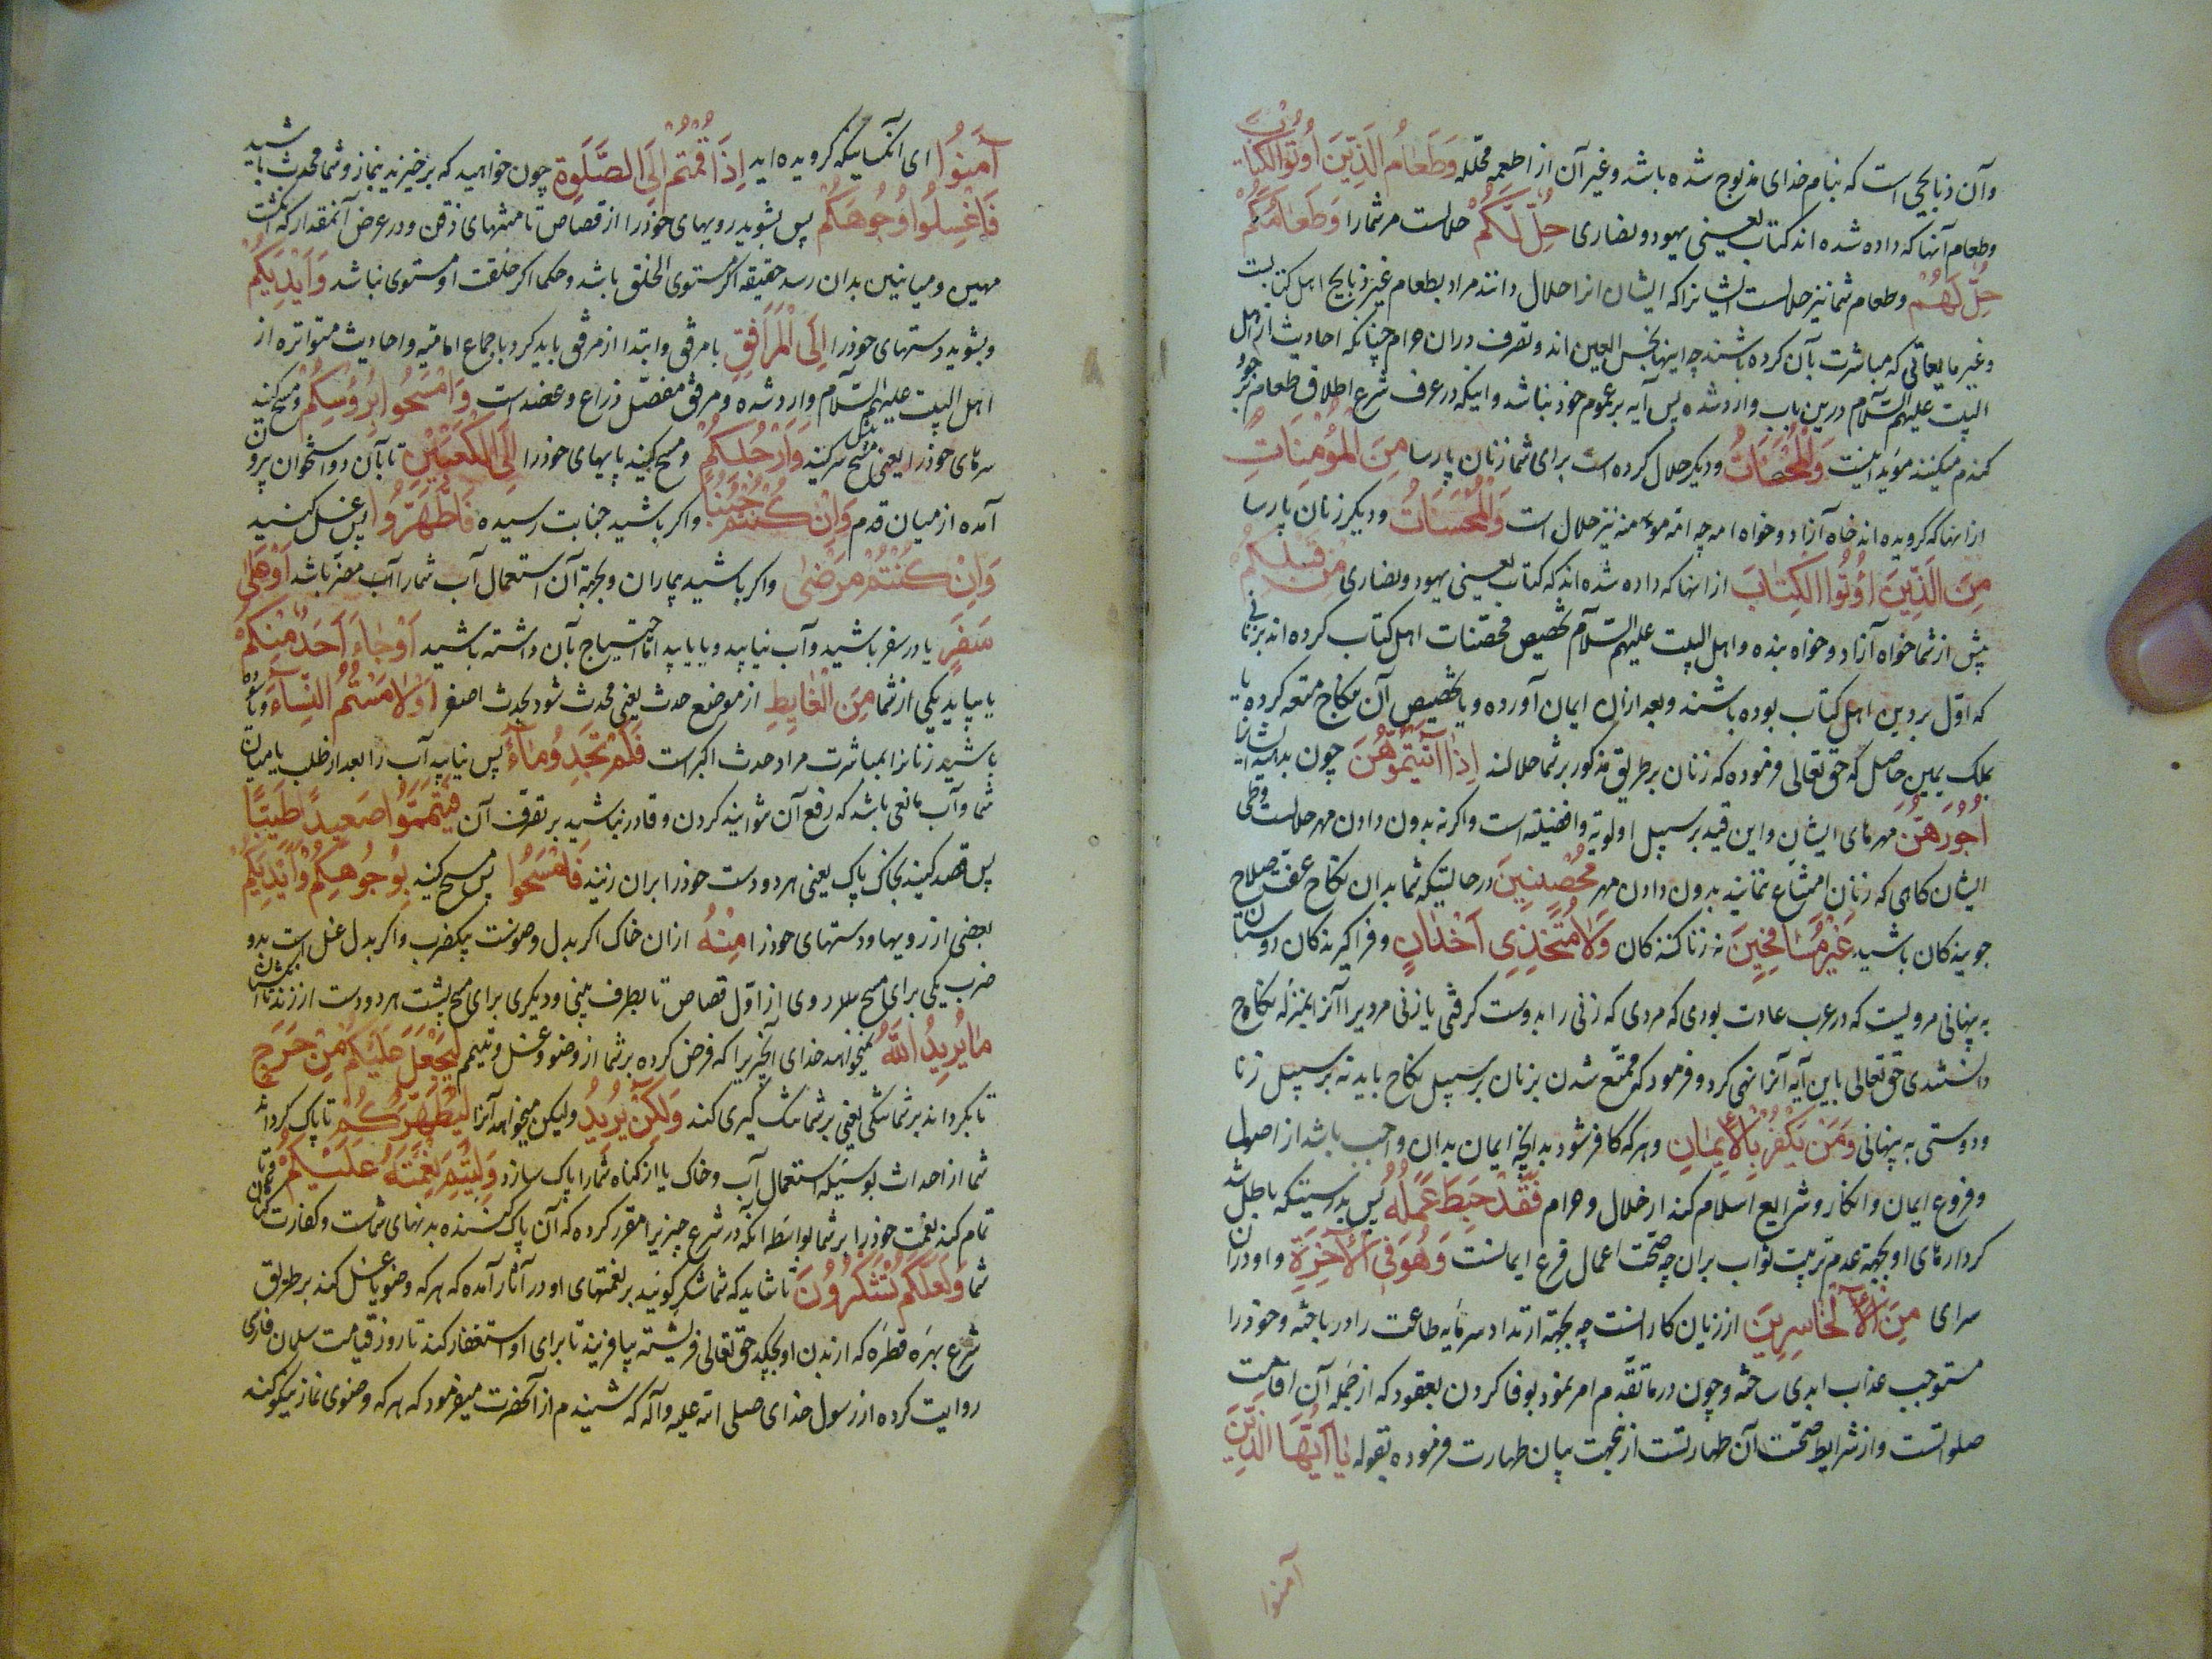 وآن ذبایحی است که بنام خدای مذبوح شده باشد وغیر آن از اطعمه محلله وَطَعامُ الَّذِینَ اُوتُوا الکِتابَ
وطعام آنها که داده شده اند کتاب یعنی یهود ونصاری حِلٌّ لَکُمْ حلالست مر شمارا وَطَعامُکُمْ
حِلٌّ لَهُمْ وطعام شما نیز حلالست ایشانرا که ایشان انرا حلال دانند مراد بطعام غیر ذبایح اهل کتابست
وغیر مایعاتی که مباشرت بآن کرده باشند چه اینها نجس العین اند وتصرف دران حرام چنانکه احادیث از اهل
البیت علیهم السلام درین باب وارد شده پس آیه بر عموم خود نباشد واینکه در عرف شرع اطلاق طعام بر جو و
کندم میکنند مؤید اینست وَالْمُحْصَناتُ ودیکر حلال کرده است برای شما زنان پارسا مِنَ الْمُؤْمِناتِ
ازانها که کرویده اند خواه آزاد وخواه امه چه امه مومنه نیز حلال است وَالْمُحْصَناتُ ودیکر زنان پارسا
مِنَ الَّذِینَ اُوتُوا الکِتابَ ازانها که داده شده اند که کتاب یعنی یهود ونصاری مِنْ قَبْلِکُمْ
پیش از شما خواه آزاد وخواه بنده واهل البیت علیهم السلام تخصیص محصنات اهل کتاب کرده اند بزنانی
که اول بر دین اهل کتاب بوده باشند وبعد ازان ایمان آورده ویا تخصیص آن بنکاح متعه کرده یا
بملک یمین حاصل که حق تعالی فرموده که زنان بر طریق مذکور بر شما حلالند اِذا آتَیْتُمُوهُنَّ چون بدهید ایشانرا
اُجُورَهُنَّ مهرهای ایشان واین قید بر سبیل اولویة وافضلیته است واکر نه بدون دادن مهر حلالست وطی
ایشان کاهی که زنان امتناع ننمایند بدون دادن مهر مُحْصِنِینَ در حالتیکه شما بدان نکاح عفت وصلاح
جویندکان باشید غَیْرَ مُسافِحِینَ نه زنا کنندکان وَلا مُتَّخِذِی اَخْدانٍ وفراکیرندکان دوستان
به پنهانی مرویست که در عرب عادت بودی که مردی که زنی را بدوست کرفتی یا زنی مردیرا آنرا بمنزله نکاح
دانستندی حق تعالی باین آیه آنرا نهی کرد وفرمود که متمتع شدن بزنان بر سبیل نکاح باید نه بر سبیل زنا
ودوستی به پنهانی وَمَنْ یَکْفُرْ بِالْاِیمانِ وهر که کافر شود بدانچه ایمان بدان واجب باشد از اصول
وفروع ایمان وانکار وشرایع اسلام کند از حلال وحرام فَقَدْ حَبِطَ عَمَلُهُ پس بدرستیکه باطل شد
کردارهای او بجهة عدم ترتیب ثواب بران چه صحت اعمال فرع ایمانست وَهُوَ فِی الْآخِرَةِ واو دران
سرای مِنَ الْخاسِرِینَ از زیان کارانست چه بجهة ارتداد سرمایه طاعت را در باخته وخودرا
مستوجب عذاب ابدی ساخته وچون در ما تقدم امر نمود بوفا کردن بعقود که از جمله آن اقامت
صلواتست واز شرایط صحت آن طهارتست ازینجهت بیان طهارت فرموده بقوله یا اَیُّهَا الَّذِینَ
آمنوا
آمَنُوا ای آنکسانیکه کرویده اید اِذا قُمْتُمْ اِلَی الصَّلَوةِ چون خواهید که برخیزید بنماز وشما محدث باشید
فَاغْسِلُوا وُجُوهَکُمْ پس بشوید رویهای خودرا از قصاص تا منتهای ذقن ودر عرض آنمقدار که انکشت
مهین ومیانین بدان رسد حقیقة اکر مستوی الخلق باشد وحکما اکر خلقت او مستوی نباشد وَاَیْدِیَکُمْ
وبشوید دستهای خودرا اِلَی الْمَرافِقِ با مرفق وابتدا از مرفق باید کرد باجماع امامیه واحادیث متواتره از
اهل البیت علیهم السلام وارد شده ومرفق مفصل ذراع وعضد است وَامْسَحُوا بِرُؤُسِکُمْ ومسح کنید
سرهای خودرا یعنی مسح پیش سر کنید وَاَرْجُلَکُمْ ومسح کنید پایهای خودرا اِلَی الْکَعْبَیْنِ تا بآن دو استخوان برون
آمده از میان قدم وَاِنْ کُنْتُمْ جُنُبًا واکر باشید جنابت رسیده فَاطَّهَّرُوا پس غسل کنید
وَاِنْ کُنْتُمْ مَرْضٰی واکر باشید بیماران وبجهة آن استعمال آب شمارا آب مضر باشد اَوْ عَلٰی
سَفَرٍ یا در سفر باشید وآب نیابید ویا یابید اما احتیاج بآن داشته باشید اَوْ جاءَ اَحَدٌ مِنْکُمْ
یا بیاید یکی از شما مِنَ الْغایِطِ از موضع حدث یعنی محدث شود بحدث اصغر اَوْ لامَسْتُمُ النِّساءَ ویا سوده
باشید زنانرا بمباشرت مراد حدث اکبر است فَلَمْ تَجِدُوا ماءً پس نیابید آب را بعد از طلب یا میان
شما وآب مانعی باشد که رفع آن نتوانید کردن وقادر نباشید بر تصرف آن فَتَیَمَّمُوا صَعِیدًا طَیِّبًا
پس قصد کنید بخاک پاک یعنی هر دو دست خودرا بران زنید فَامْسَحُوا پس مسح کنید بِوُجُوهِکُمْ وَاَیْدِیکُمْ
بعضی از رویها ودستهای خودرا مِنْهُ ازان خاک اکر بدل وضوست بیکضرب واکر بدل غسل است بدو
ضرب یکی برای مسح روی از اول قصاص تا بطرف بینی ودیکری برای مسح پشت هر دو دست از زند تا انکشتان
ما یُرِیدُ اللهُ نمیخواهد خدای آنچیزیرا که فرض کرده بر شما از وضو وغسل وتیمم لِیَجْعَلَ عَلَیْکُمْ مِنْ حَرَجٍ
تا بکرداند بر شما تنکی یعنی بر شما تنک کیری کند وَلٰکِنْ یُرِیدُ ولیکن میخواهد آنرا لِیُطَهِّرَکُمْ تا پاک کرداند
شما از احداث بوسیله استعمال آب وخاک یا از کناه شمارا پاک سازد وَلِیُتِمَّ نِعْمَتَهُ عَلَیْکُمْ وتا
تمام کند نعمت خودرا بر شما بواسطه انکه در شرع چیزیرا مقرر کرده که آن پاک کننده بدنهای شماست وکفارت کناهان
شما وَلَعَلَّکُمْ تَشْکُرُونَ تا شاید که شما شکر کوئید بر نعمتهای او در آثار آمده که هر که وضو یا غسل کند بر طریق
شرع بهره قطره که از بدن او بچکد حق تعالی فریشته بیافریند تا برای او استغفار کند تا روز قیامت سلمان فارسی
روایت کرده از رسول خدای صلی الله علیه وآله که شنیدم از آنحضرت میفرمود که هر که وضوی نماز نیکو کند